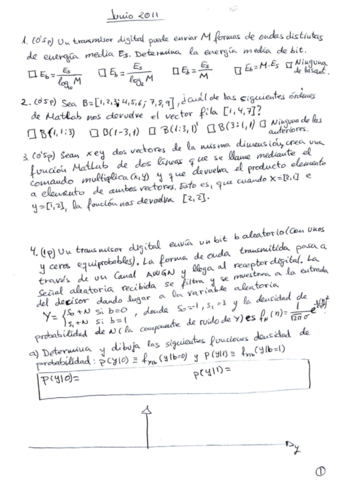 Junio 2011
1. (0'5p) Un transmisor digital puede enviar M formas de ondas distintas
de energía media Es. Determina la energía media de bit.
□ Eb = Es / log10 M □ Eb = Es / log2 M □ Eb = Es / M □ Eb = M·Es □ Ninguna
2. (0'5p) Sea B=[1,2,3;4,5,6;7,8,9], ¿cuál de las siguientes órdenes
de Matlab nos devuelve el vector fila [1,4,7]?
□ B(1,1:3) □ B(1-3,1) □ B(1:3,1)' □ B(3:1,1) □ Ninguna de las
anteriores.
3. (0'5p) Sean x e y dos vectores de la misma dimensión, crea una
función Matlab de dos líneas que se llame mediante el
comando multiplica(x,y) y que devuelva el producto elemento
a elemento de ambos vectores. Esto es, que cuando x=[2,1] e
y=[1,2], la función nos devuelva [2,2].
4. (1p) Un transmisor digital envía un bit b aleatorio (con unos
y ceros equiprobables). La forma de onda transmitida pasa a
través de un canal AWGN y llega al receptor digital. La
señal aleatoria recibida se filtra y se muestrea a la entrada
del decisor dando lugar a la variable aleatoria
Y = { S0 + N si b=0
S1 + N si b=1 , donde S0=-1, S1=3 y la densidad de
probabilidad de N (la componente de ruido de Y) es fN(n)=
a) Determina y dibuja las siguientes funciones densidad de
probabilidad: p(y|0) ≡ fY|b(y|b=0) y p(y|1) ≡ fY|b(y|b=1)
p(y|0)= p(y|1)=
y
1